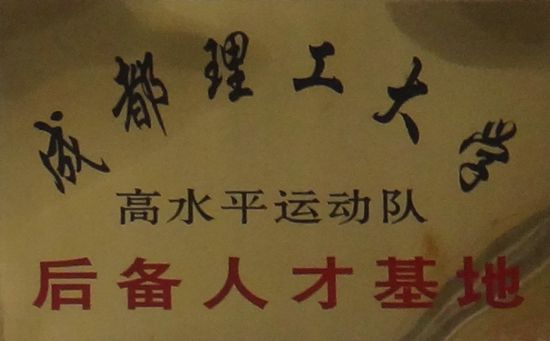 成都理工大学
高水平运动队
后备人才基地